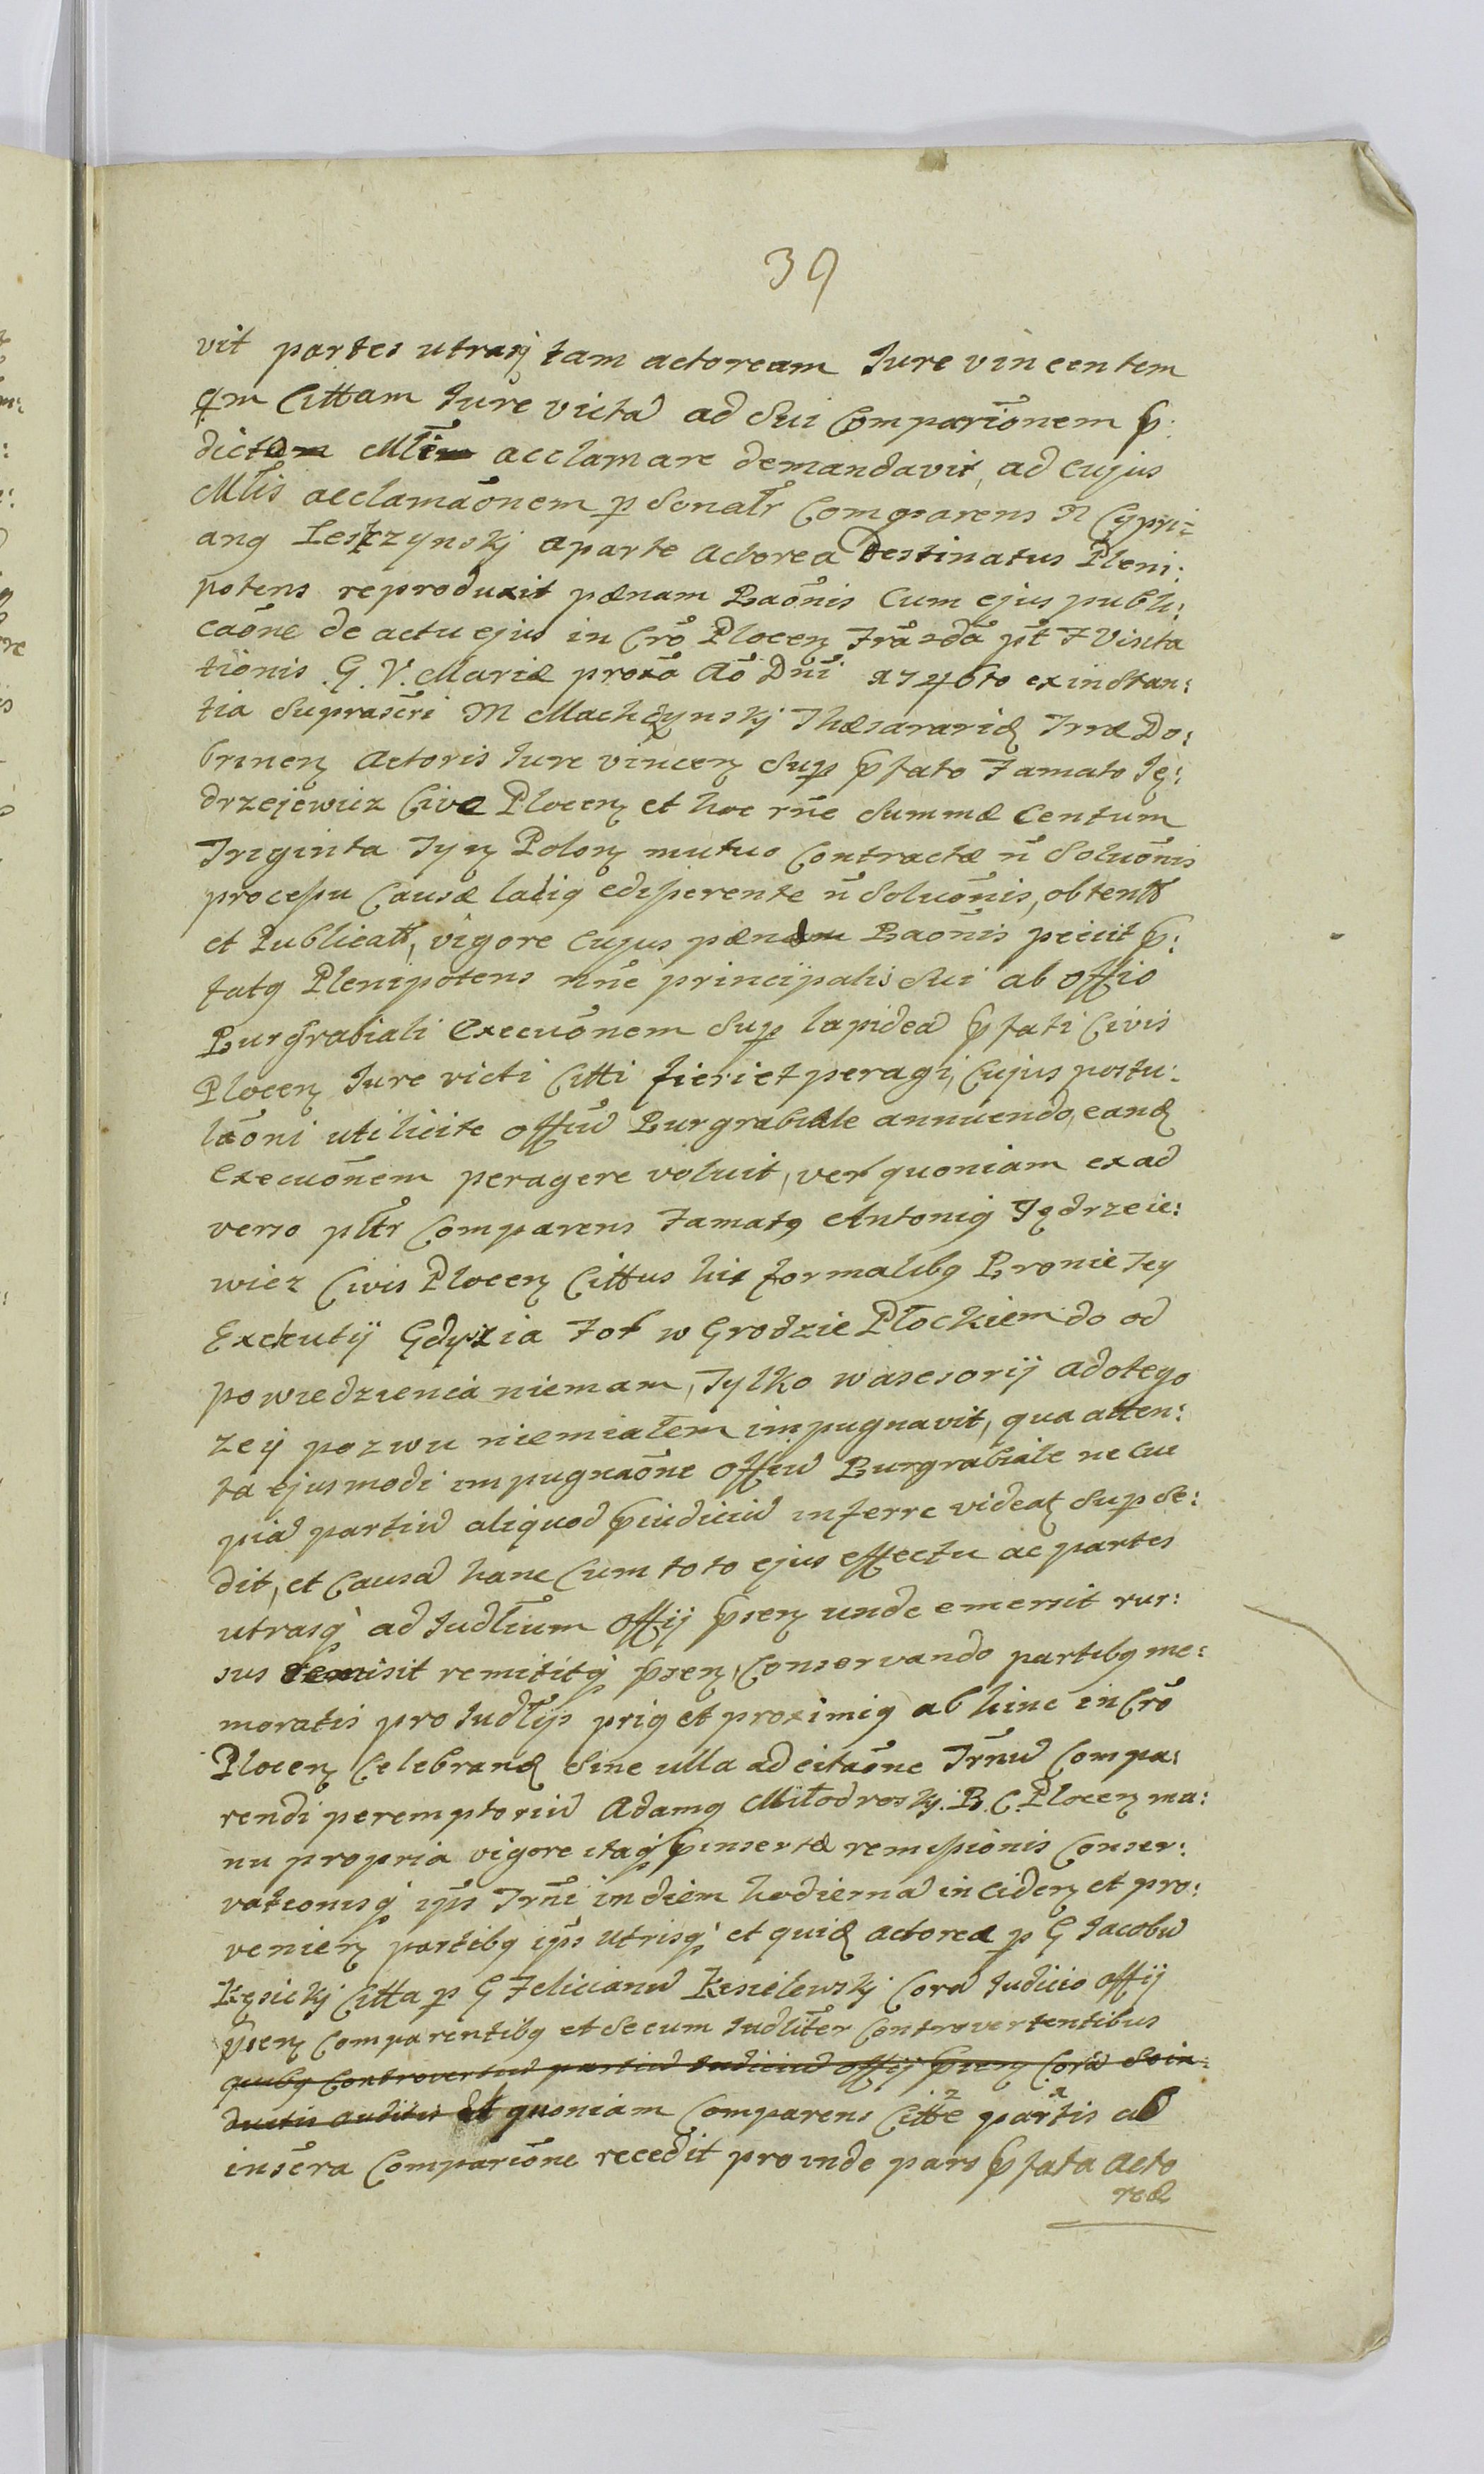 39
vit partes utrasq tam actoream Jure vincentem
qm Cittam Jure victã ad sui Comparõnem p̃:
dictem Mltem acclamare demandavit, ad cujus
Mltis acclamãonem psonalr Comparens N Cypri=
ang Leszczynskj aparte actorea Destinatus Pleni:
potens reproduxit pœnam Baõnis Cum ejus publi:
caõne de actu ejus in Crõ Plocen Frã 2dã pt F Visita
tionis G. V. Mariæ proxa Aõ Dñi 1746to ex instan:
tia suprascri M Machczynskj Thæsararid Trræ Do:
brinen Actoris Jure vincen sup p̃fato Famato Ję:
drzejewicz Cive Plocen et hoc rñe summæ Centum
Triginta Tyn Polon mutuo Contractæ ñ Soluõnis
processu Causæ latiq edisserente ñ Soluõnis, obtent
et Publicat, vigore cujus pœnæ Baõnis petiit p̃:
fatq Plenipotens nñe principalis sui ab offio
Burgrabiali Execuõnem sup lapideã p̃fati Civis
Plocen Jure victi Citti fieri et peragi, Cujus postu:
laõni uti licite offiũ Burgrabiale annuendo, eand
Execuõnem peragere voluit, ver quoniam ex ad
verso pltr Comparens Famatq Antoniq Jędrzeie:
wicz Civis Plocen Cittus his formalibq Bronie Tey
Exekutÿ Gdyż ia Tot w Grodzie Płockiem do od
powiedzienia niemam, Tylko wasesorÿ adotego
zeÿ pozwu niemiałem impugnavit, qua atten:
ta ejusmodi impugnaõne offiũ Burgrabiale ne cui
piã partiũ aliquod p̃iudiciũ inferre videat supse:
dit, et Causã hanc Cum toto ejus effectu ac partes
utrasq ad Judltium offÿ p̃sen unde emersit rur:
sus remisit remititq p̃sen, Conservando partibq me:
moratis pro Judltÿs priq et proximiq ab hinc in Crõ
Plocen Celebrand sine ulla adcitaõne Trñũ Compa:
rendi peremptoriũ Adamq Miłodroskj. B. C. Plocen ma:
nu propria vigore itaq p̃insertæ remissionis Conser:
vationisq ips Trñi in diem hodiernã inciden et pro:
venien partibq ips utrisq et quid actorea p G Jacobũ
Kęsickj Citta p G Felicianũ Kesielewskj Corã Judicio offÿ
p̃sen Comparentibq et secum Judliter Controvertentibus
quibq Controversiis partiũ Judiciũ offÿ p̃sen Corã se in:
ductis auditis et quoniam Comparens Cittæ 2 partis 1 ab
inscra Comparõne recedit proinde pars p̃fata Acto
rea